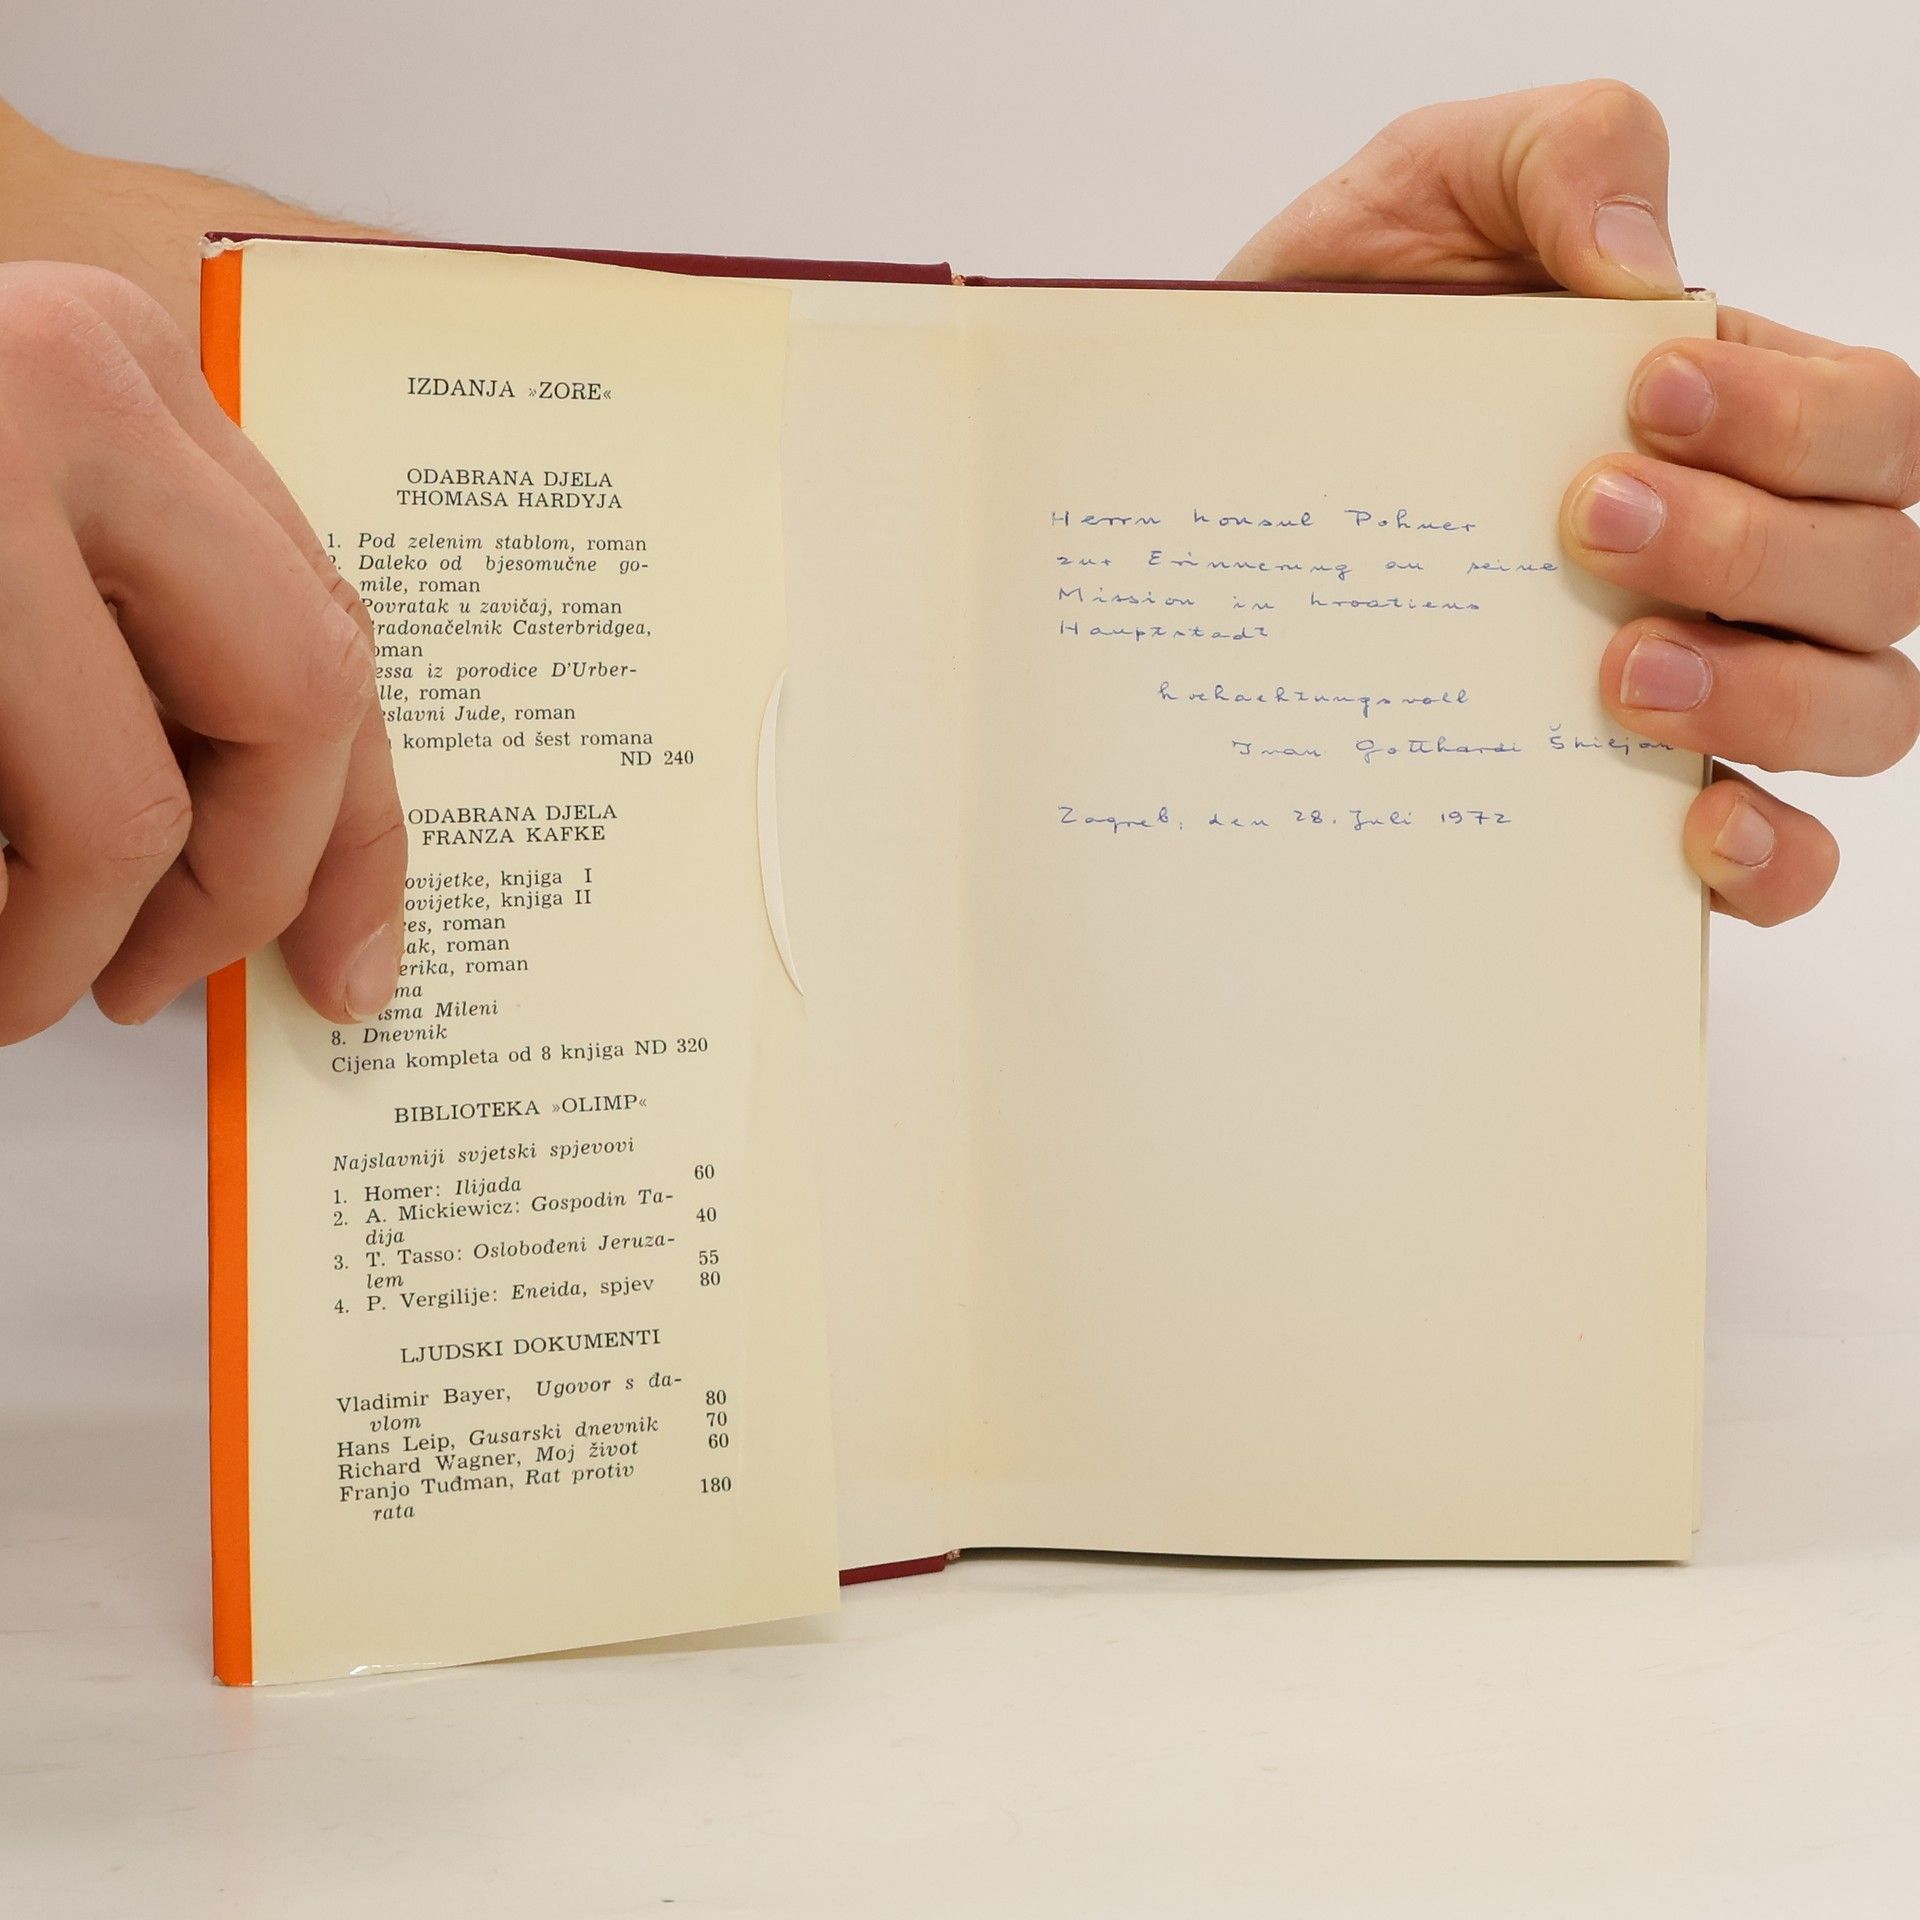 IZDANJA »ZORE«
ODABRANA DJELA
THOMASA HARDYJA
1. Pod zelenim stablom, roman
Daleko od bjesomučne go-
mile, roman
Povratak u zavičaj, roman
Casterbridgea,
iz porodice D'Urber-
roman
Jude, roman
kompleta od šest romana
ND 240
ODABRANA DJELA
FRANZA KAFKE
knjiga I
knjiga II
roman
roman
roman
Mileni
8. Dnevnik
Cijena kompleta od 8 knjiga ND 320
BIBLIOTEKA »OLIMP«
Najslavniji svjetski spjevovi
1. Homer: Ilijada 60
2. A. Mickiewicz: Gospodin Ta-
dija 40
3. T. Tasso: Oslobođeni Jeruza-
lem 55
4. P. Vergilije: Eneida, spjev 80
LJUDSKI DOKUMENTI
Vladimir Bayer, Ugovor s đa-
vlom 80
Hans Leip, Gusarski dnevnik 70
Richard Wagner, Moj život 60
Franjo Tuđman, Rat protiv
rata 180
Herrn Konsul Pohner
zur Erinnerung an seine
Mission in Kroatiens
Hauptstadt
hochachtungsvoll
Ivan Gotthardi Škiljan
Zagreb, den 28. Juli 1972